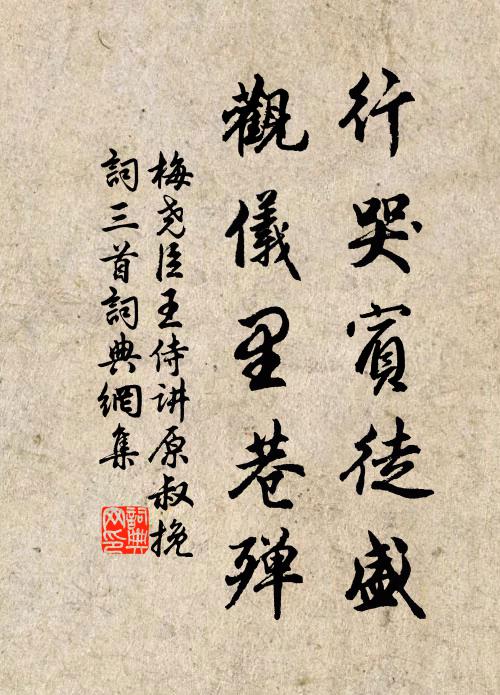 行哭賓徒盛
觀儀里巷殫
梅尧臣王侍讲原叔挽
詞三首詞典網集
詞典
网印